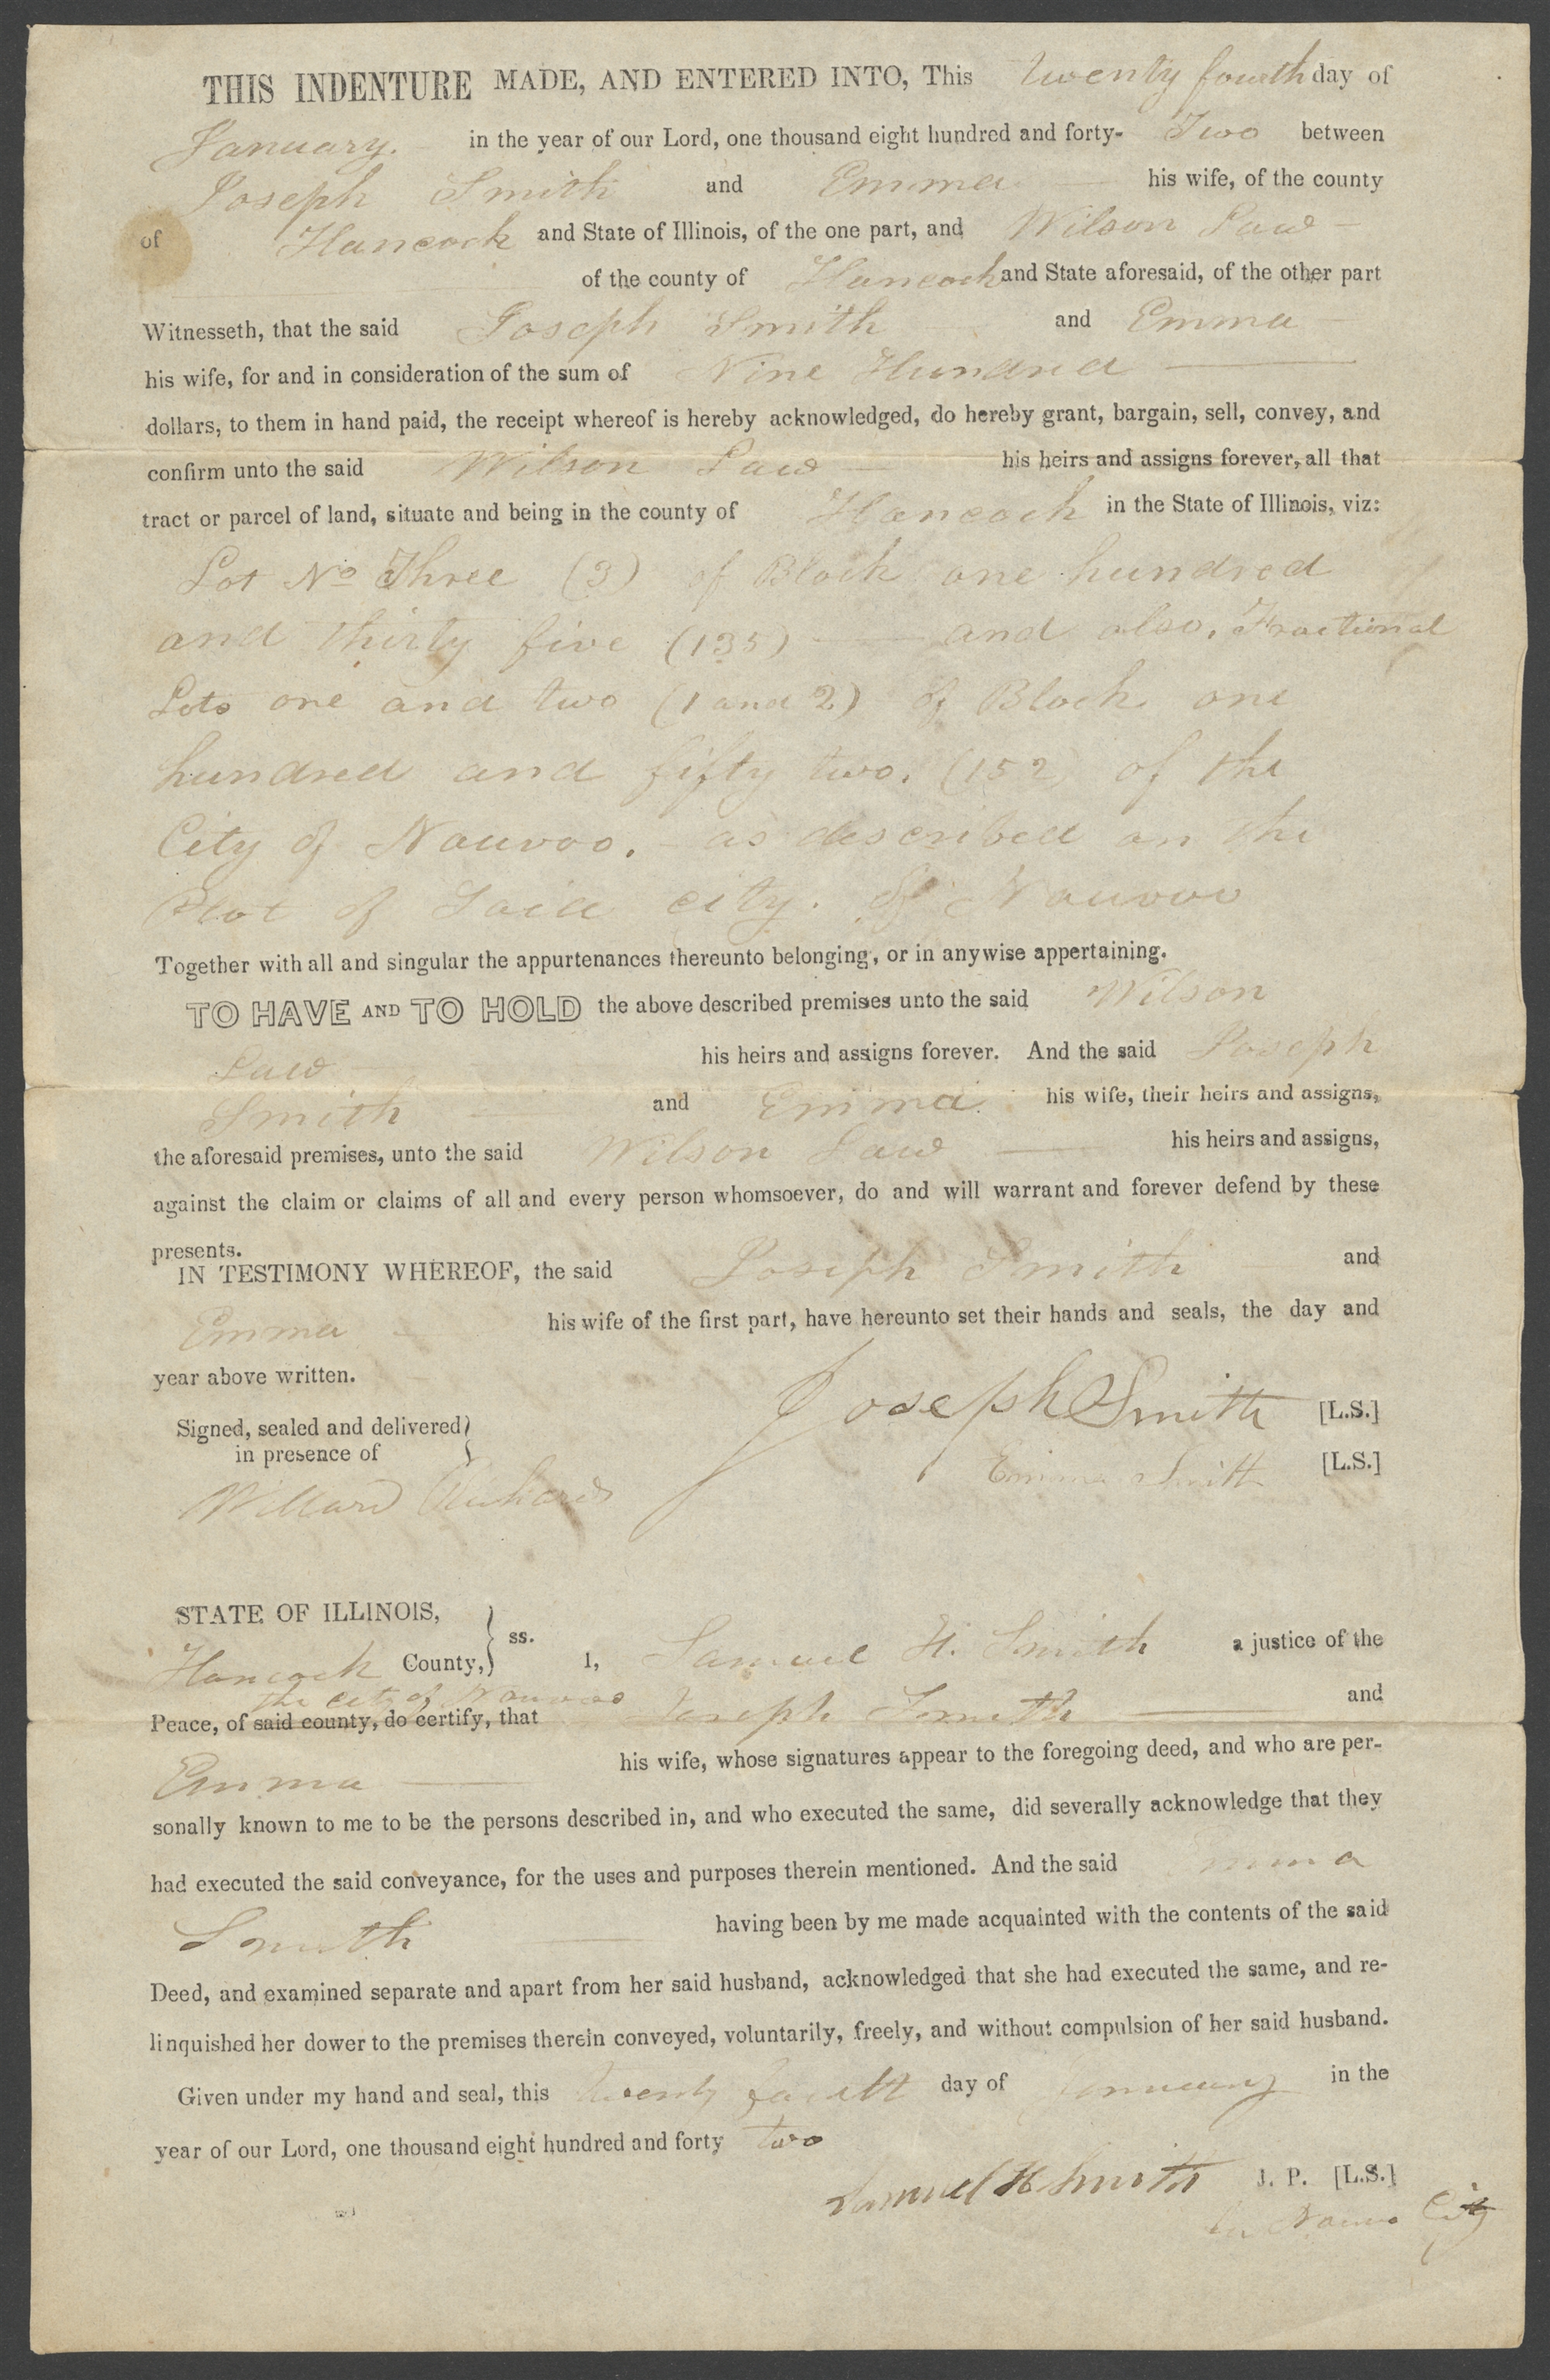 THIS INDENTURE MADE, AND ENTERED INTO, This twenty fourth day of
January. in the year of our Lord, one thousand eight hundred and forty- Two between
Joseph Smith and Emma his wife, of the county
of Hancock and State of Illinois, of the one part, and Wilson Law
of the county of Hancock and State aforesaid, of the other part
Witnesseth, that the said Joseph Smith and Emma
his wife, for and in consideration of the sum of Nine Hundred
dollars, to them in hand paid, the receipt whereof is hereby acknowledged, do hereby grant, bargain, sell, convey, and
confirm unto the said Wilson Law his heirs and assigns forever, all that
tract or parcel of land, situate and being in the county of Hancock in the State of Illinois, viz:
Lot No Three (3) of Block one hundred
and thirty five (135) and also, Fractional
Lots one and two (1 and 2) of Block one
hundred and fifty two. (152) of the
City of Nauvoo. as described on the
Plot of Said city. of Nauvoo
Together with all and singular the appurtenances thereunto belonging, or in anywise appertaining.
TO HAVE AND TO HOLD the above described premises unto the said Wilson
Law his heirs and assigns forever. And the said Joseph
Smith and Emma his wife, their heirs and assigns,
the aforesaid premises, unto the said Wilson Law his heirs and assigns,
against the claim or claims of all and every person whomsoever, do and will warrant and forever defend by these
presents.
IN TESTIMONY WHEREOF, the said Joseph Smith and
Emma his wife of the first part, have hereunto set their hands and seals, the day and
year above written.
Joseph Smith [L.S.]
Signed, sealed and delivered
in presence of
Emma Smith [L.S.]
Willard Richards
STATE OF ILLINOIS,
Hancock County, ss. I, Samuel H. Smith a justice of the
the City of Nauvoo
Peace, of said county, do certify, that Joseph Smith and
Emma his wife, whose signatures appear to the foregoing deed, and who are per-
sonally known to me to be the persons described in, and who executed the same, did severally acknowledge that they
had executed the said conveyance, for the uses and purposes therein mentioned. And the said Emma
Smith having been by me made acquainted with the contents of the said
Deed, and examined separate and apart from her said husband, acknowledged that she had executed the same, and re-
linquished her dower to the premises therein conveyed, voluntarily, freely, and without compulsion of her said husband.
Given under my hand and seal, this twenty fourth day of January in the
year of our Lord, one thousand eight hundred and forty two
Samuel H Smith J. P. [L.S.]
Nauvoo City